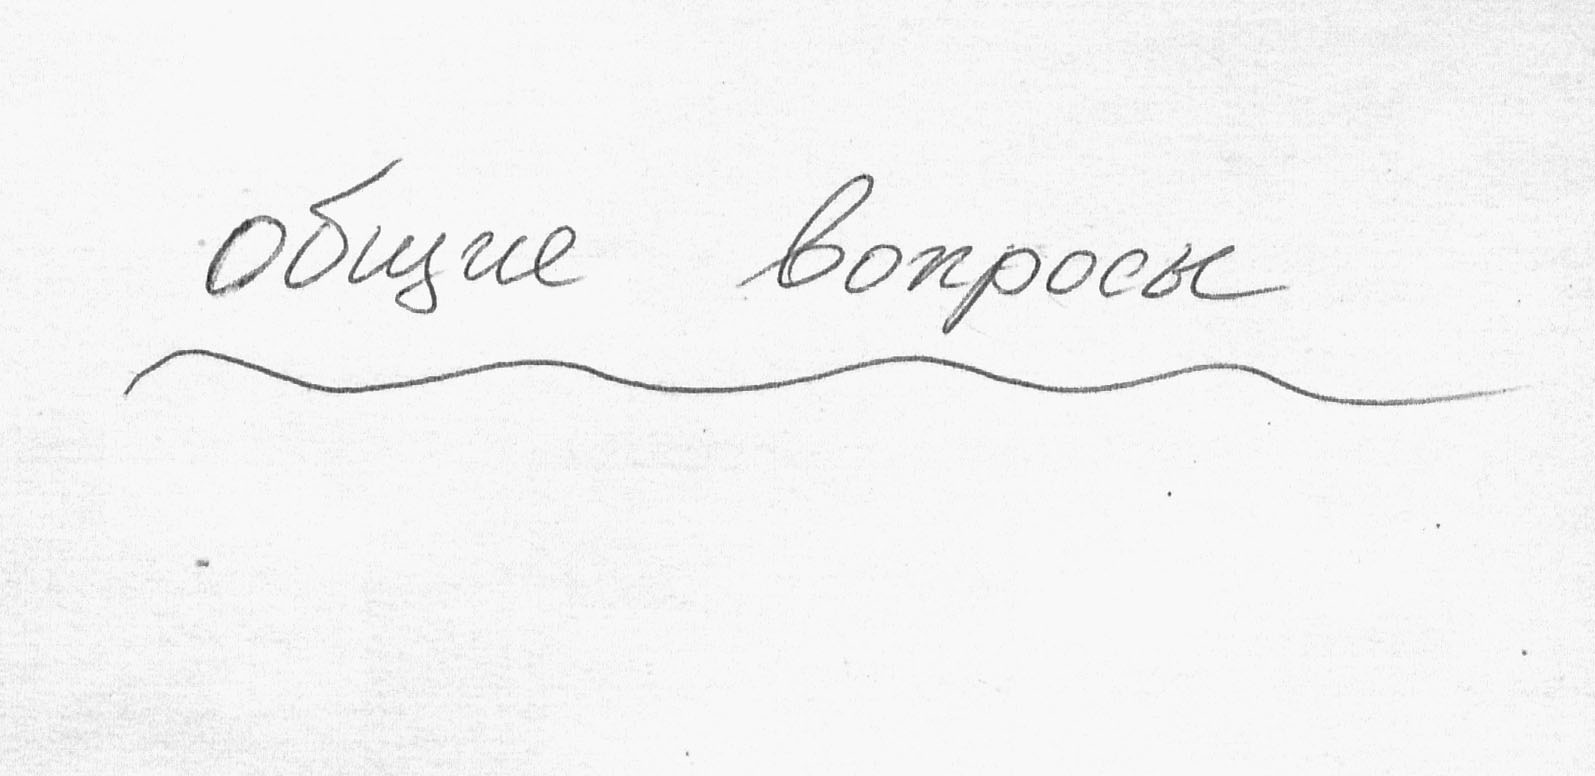 общие вопросы